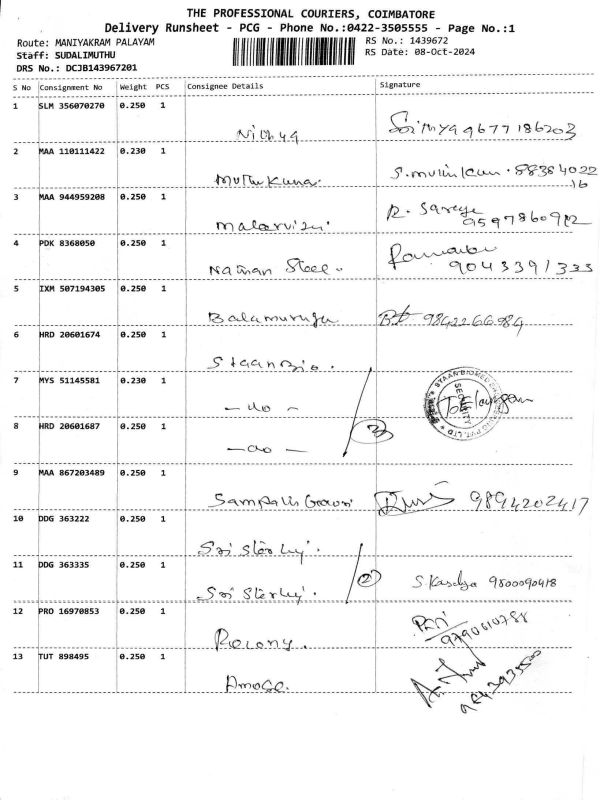 THE PROFESSIONAL COURIERS, COIMBATORE
Delivery Runsheet - PCG - Phone No.:0422-3505555 - Page No.:1
Route: MANIYAKRAM PALAYAM
RS No.: 1439672
Staff: SUDALIMUTHU
RS Date: 08-Oct-2024
DRS No.: DCJB143967201
S No Consignment No Weight PCS Consignee Details Signature
1 SLM 356070270 0.250 1
Nithya 9677186203
2 MAA 110111422 0.230 1
Muthukuma. 88384022
16
3 MAA 944959208 0.250 1
Malarvizhi R. 9597860912
4 PDK 8368050 0.250 1
Naiman Steel. 9043391333
5 IXM 507194305 0.250 1
Balamuruga 9842266984
6 HRD 20601674 0.250 1
Staanbio.
7 MYS 51145581 0.230 1
- do -
STAAN BIOMED ENGINEERING PVT. LTD
SECURITY
8 HRD 20601687 0.250 1
- do -
3
9 MAA 867203489 0.250 1
Sampath 9894202417
10 DDG 363222 0.250 1
Sri
11 DDG 363335 0.250 1
Sri
2
S. 9800090418
12 PRO 16970853 0.250 1
9790610788
13 TUT 898495 0.250 1